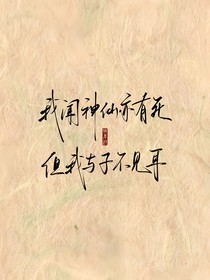 我闻神仙亦有死
但我与子不见耳